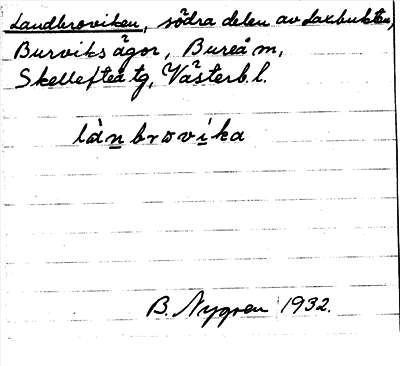 Landbroviken, södra delen av Laxbukten,
Burviks ägor, Bureå m,
Skellefteå tg, Västerb. l.
lànbrovíka
B. Nygren 1932.